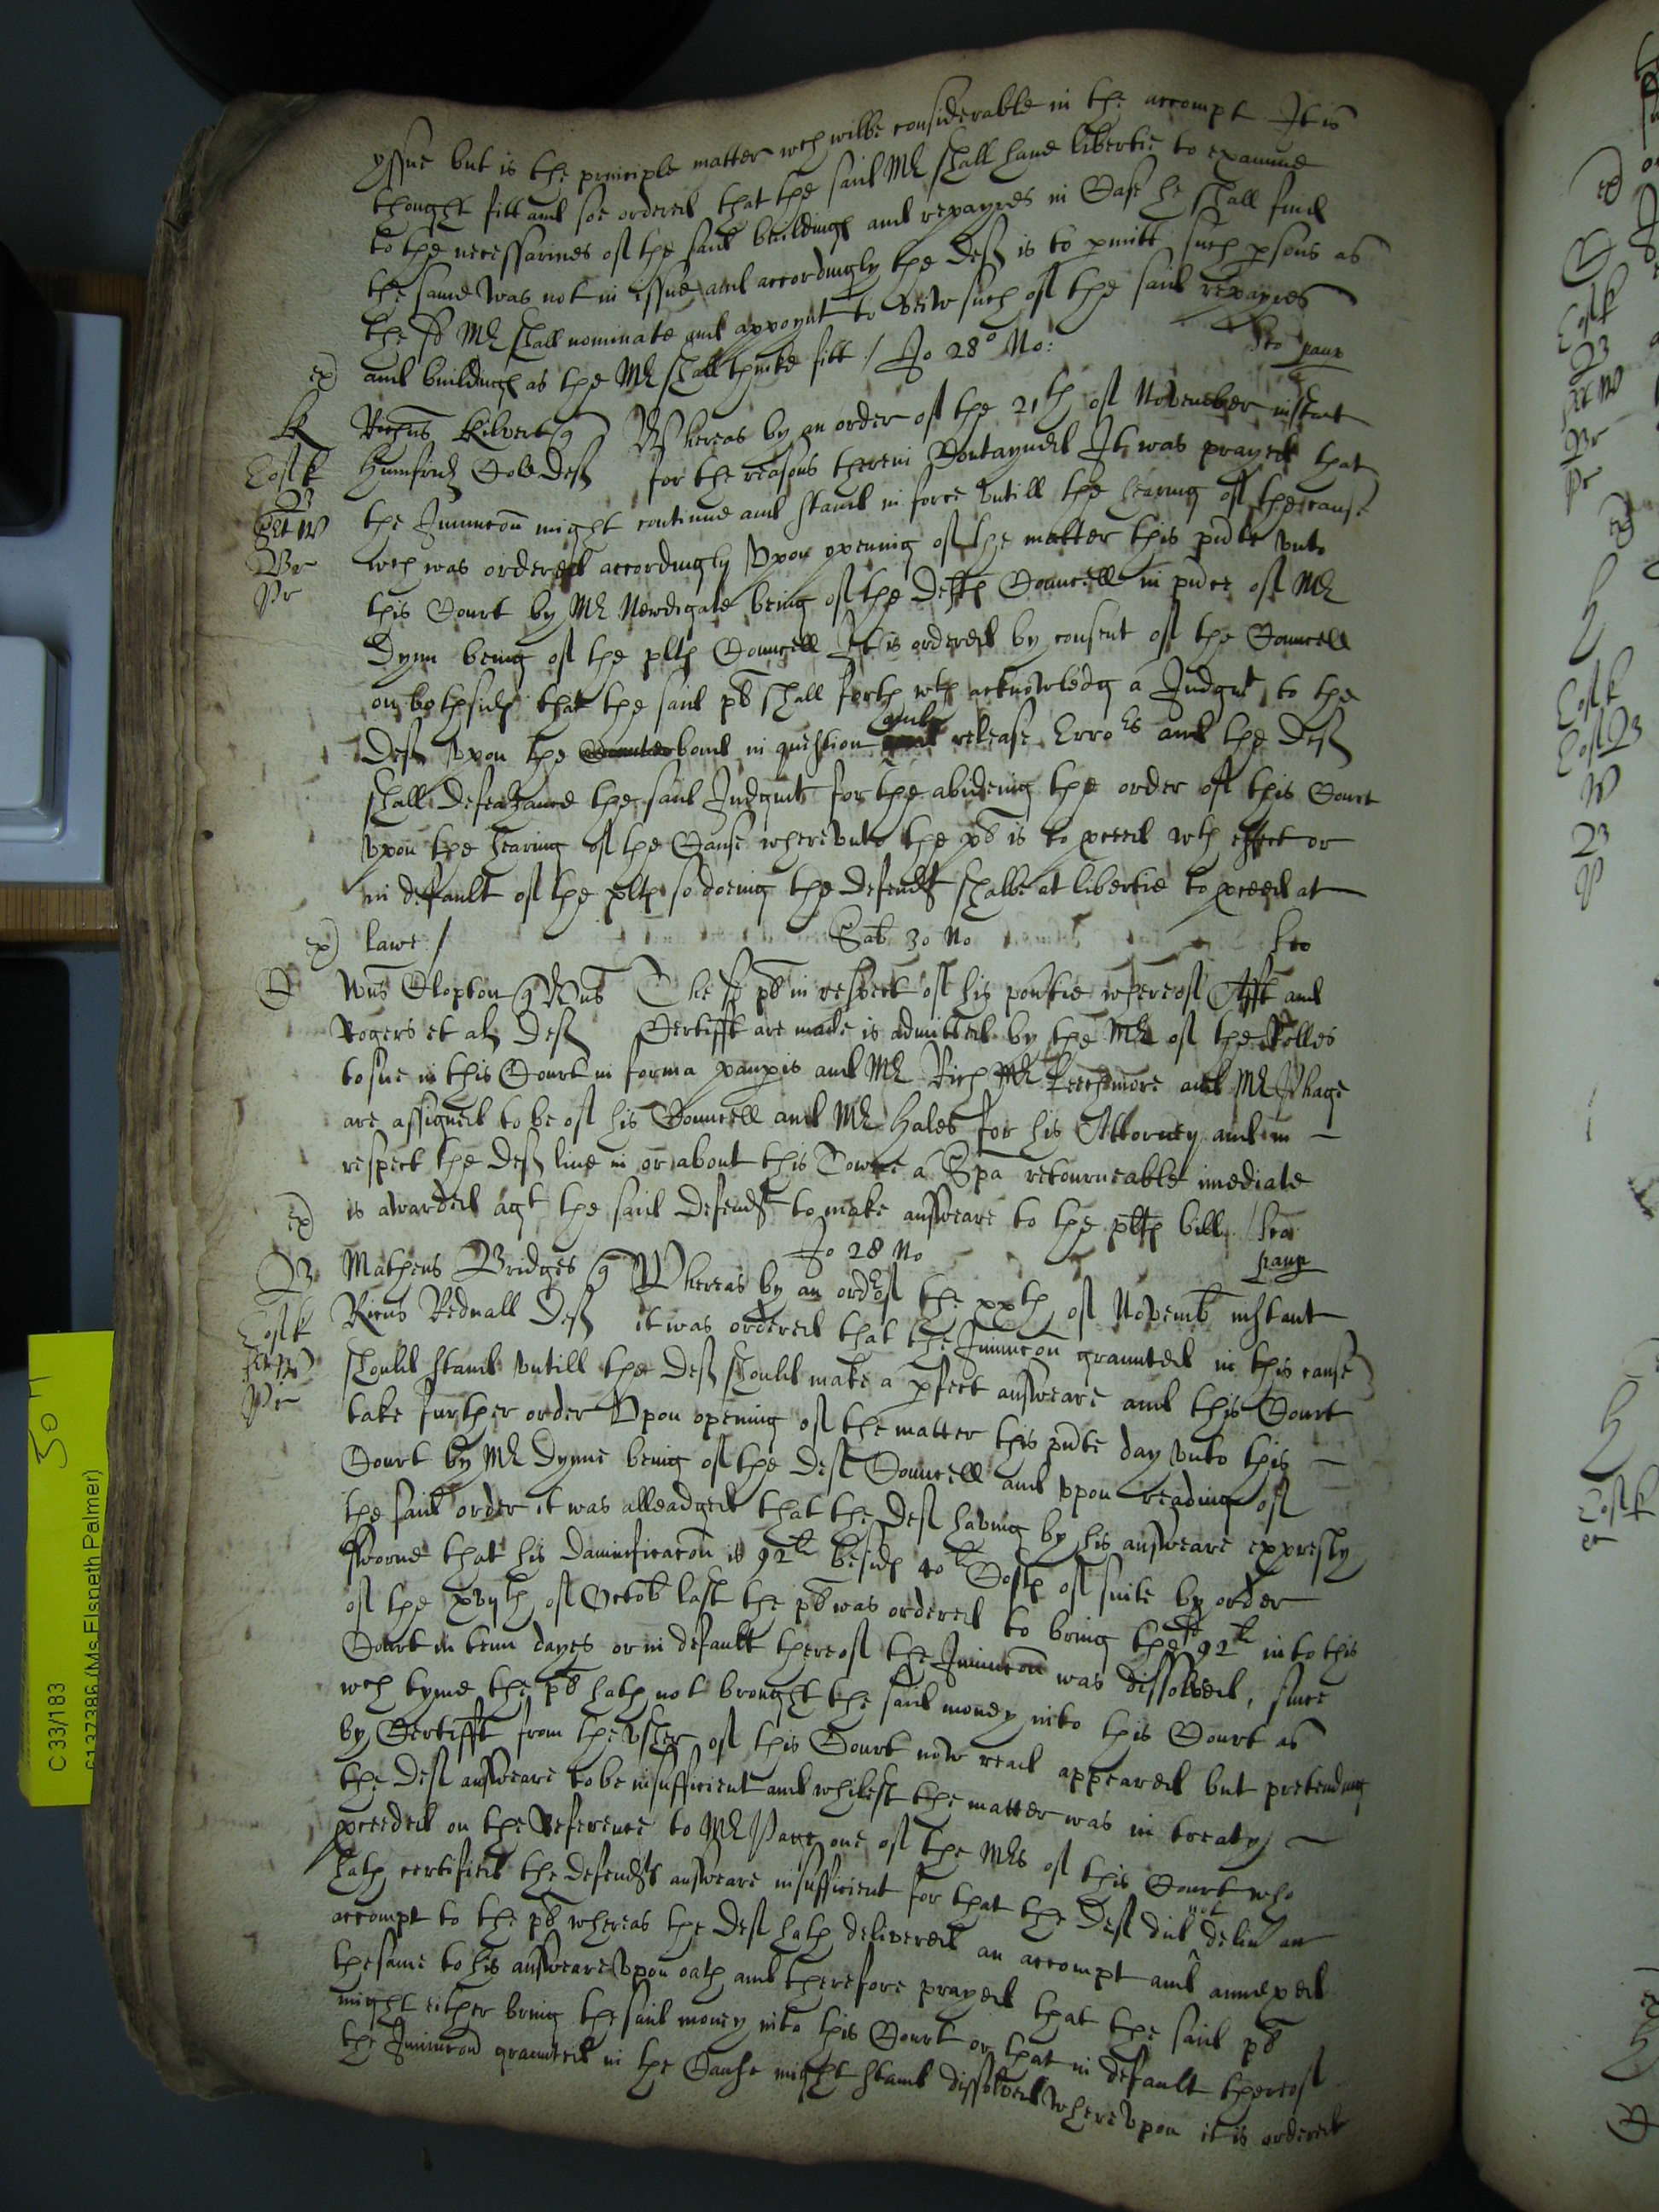 yssue but is the principle matter wch wilbe considerable in the accompt It is
thought fitt and soe ordered that the said Mr shall have libertie to examine
to the necessarines of the said buildings and repayres in Case he shall find
the same was not in issue and accordingly the Deft is to pmitt such psons as
the sd Mr shall nominate and appoynt to view such of the said repayres
and buildings as the Mr shall thinke fitt / Jo 28o No:
Richus Kilvert q Whereas by an order of the 21th of November instant
Humfrid Cole Deft for the reasons therein Contayned It was prayed that
the Iniunccon might continue and stand in force vntill the hearing of the cause
wch was ordered accordingly Vpon opening of the matter this pnte vnto
this Court by Mr Newdigate being of the Defts Councell in pnce of Mr
Dynn being of the plts Councell It is ordered by consent of the Councell
on bothsides that the said pl shall forth wth acknowledg a Judgmt to the
Deft Vpon the bond in question and release Errors and the Deft
shall defeazance the said Judgmt for the abideing the order of this Court
Vpon the hearing of the Cause wherevnto the pl is to pceed wth effect or
in deffault of the plts so doeing the Defendt shalbe at libertie to pceed at
lawe / Sab 30 No
Wms Clopton q Wms The sd pl in respect of his povtie whereof Afft and
Rogers et al Deft Certifft are made is admitted by the Mr of the Rolles
to sue in this Court in forma paupis and Mr Rich Mr Leechmore and Mr Phage
are assigned to be of his Councell and Mr Hales for his Attorney and in
respect the Deft live in or about this Towne a Spa retourneable imediate
is awarded agt the said Defendt to make answeare to the plts bill
Jo 28 No
Matheus Bridges q Whereas by an order of the xxth of Novemb instant
Ricus Rednall Deft it was ordered that the Iniunccon graunted in this cause
should stand vntill the Deft should make a pfect answeare and this Court
take further order Vpon opening of the matter this pnte day vnto this
Court by Mr Dynne being of the Deft Councell and vpon reading of
the said order it was alleadged that the Deft having by his answeare expresly
sworne that his damnificacon is 92li besids 40li Costs of suite by order
of the xvyth of Octob last the pl was ordered to bring the sd 92li into this
Court in tenn dayes or in default thereof the Iniunccon was dissolved, since
wch tyme the pl hath not brought the said money into this Court as
by Certifft from the vsher of this Court now read appeared but pretending
the Deft answeare to be insufficient and whilest the matter was in treaty
pceeded on the Reference to Mr Page one of the Mrs of this Court who
hath certified the defendts answeare insufficient for that the Deft did not deliv an
accompt to the pl whereas the Deft hath delivered an accompt and annexed
the same to his answeare Vpon oath and therefore prayed that the said pl
might either bring the said money into this Court or that in default thereof
the Iniunccon graunted in the Cause might stand dissolved wherevpon it is ordered
C 33/183
(Ms Elspeth Palmer)